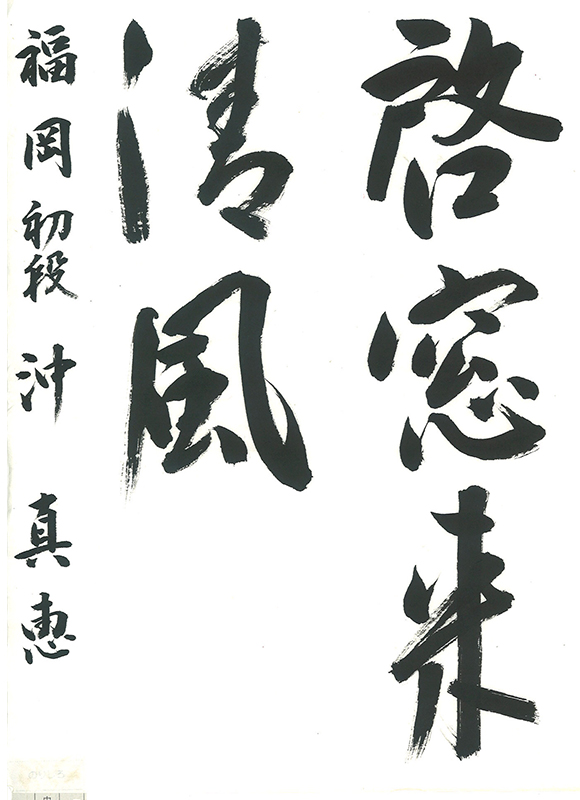 啓窓来
清風
福岡 初段 沖 真恵